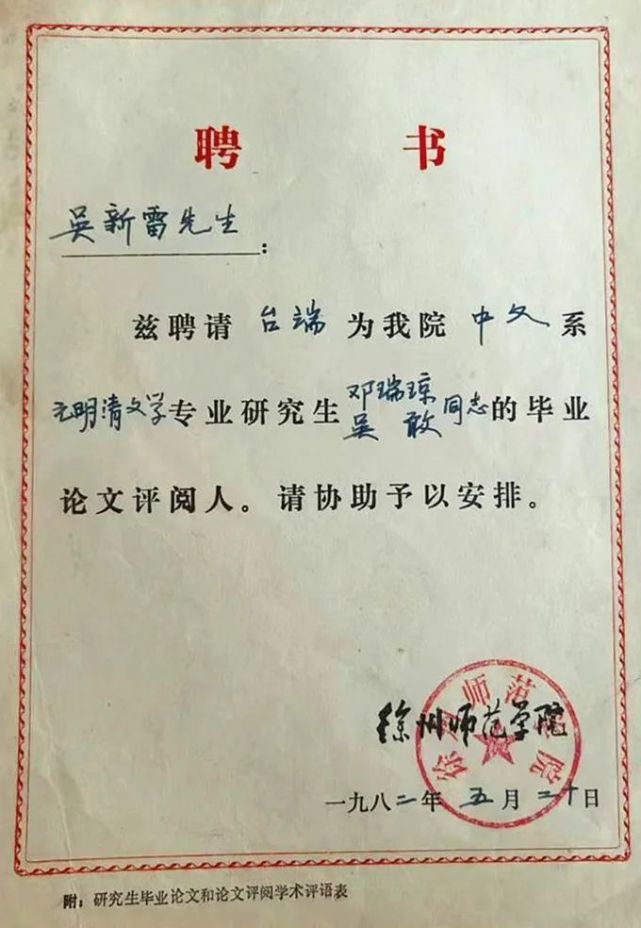 聘书
吴新雷先生：
兹聘请 台端 为我院 中文 系
元明清文学专业研究生邓瑞琼 吴敢同志的毕业
论文评阅人。请协助予以安排。
徐州师范学院
徐州师范学院
一九八二年 五月 二十日
附：研究生毕业论文和论文评阅学术评语表